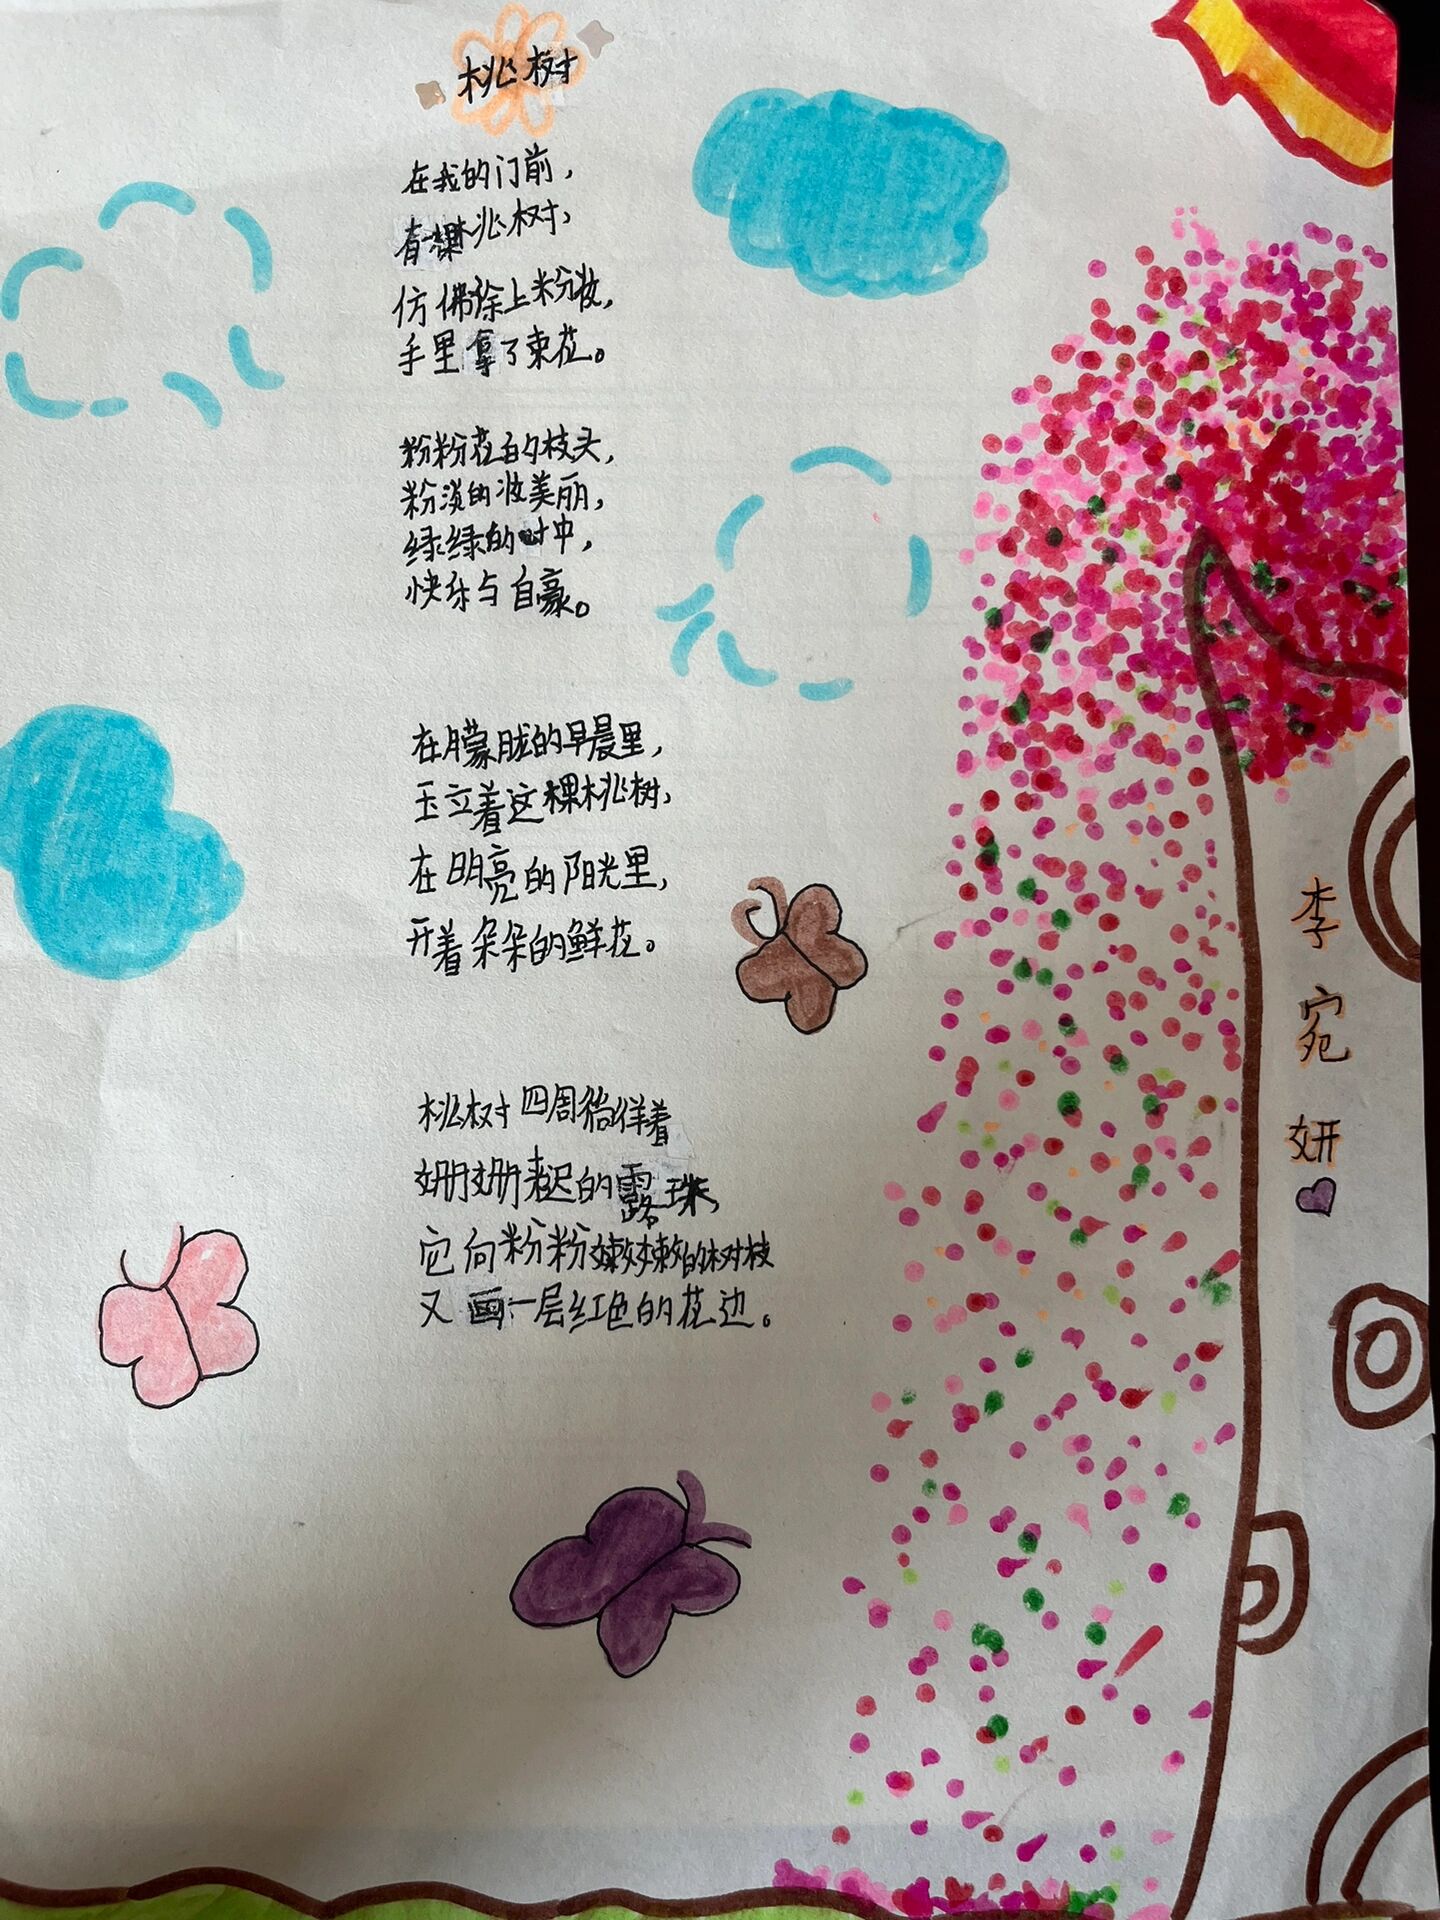 桃树
在我的门前，
有一棵桃树，
仿佛涂上粉妆，
手里拿了束花。
粉粉花白的枝头，
粉淡的妆美丽，
绿绿的叶中，
快乐与自豪。
在朦胧的早晨里，
玉立着这棵桃树，
在明亮的阳光里，
开着朵朵的鲜花。
桃树四周徜徉着
姗姗来迟的露珠，
它向粉粉嫩嫩的树枝
又画一层红色的花边。
李宛妍